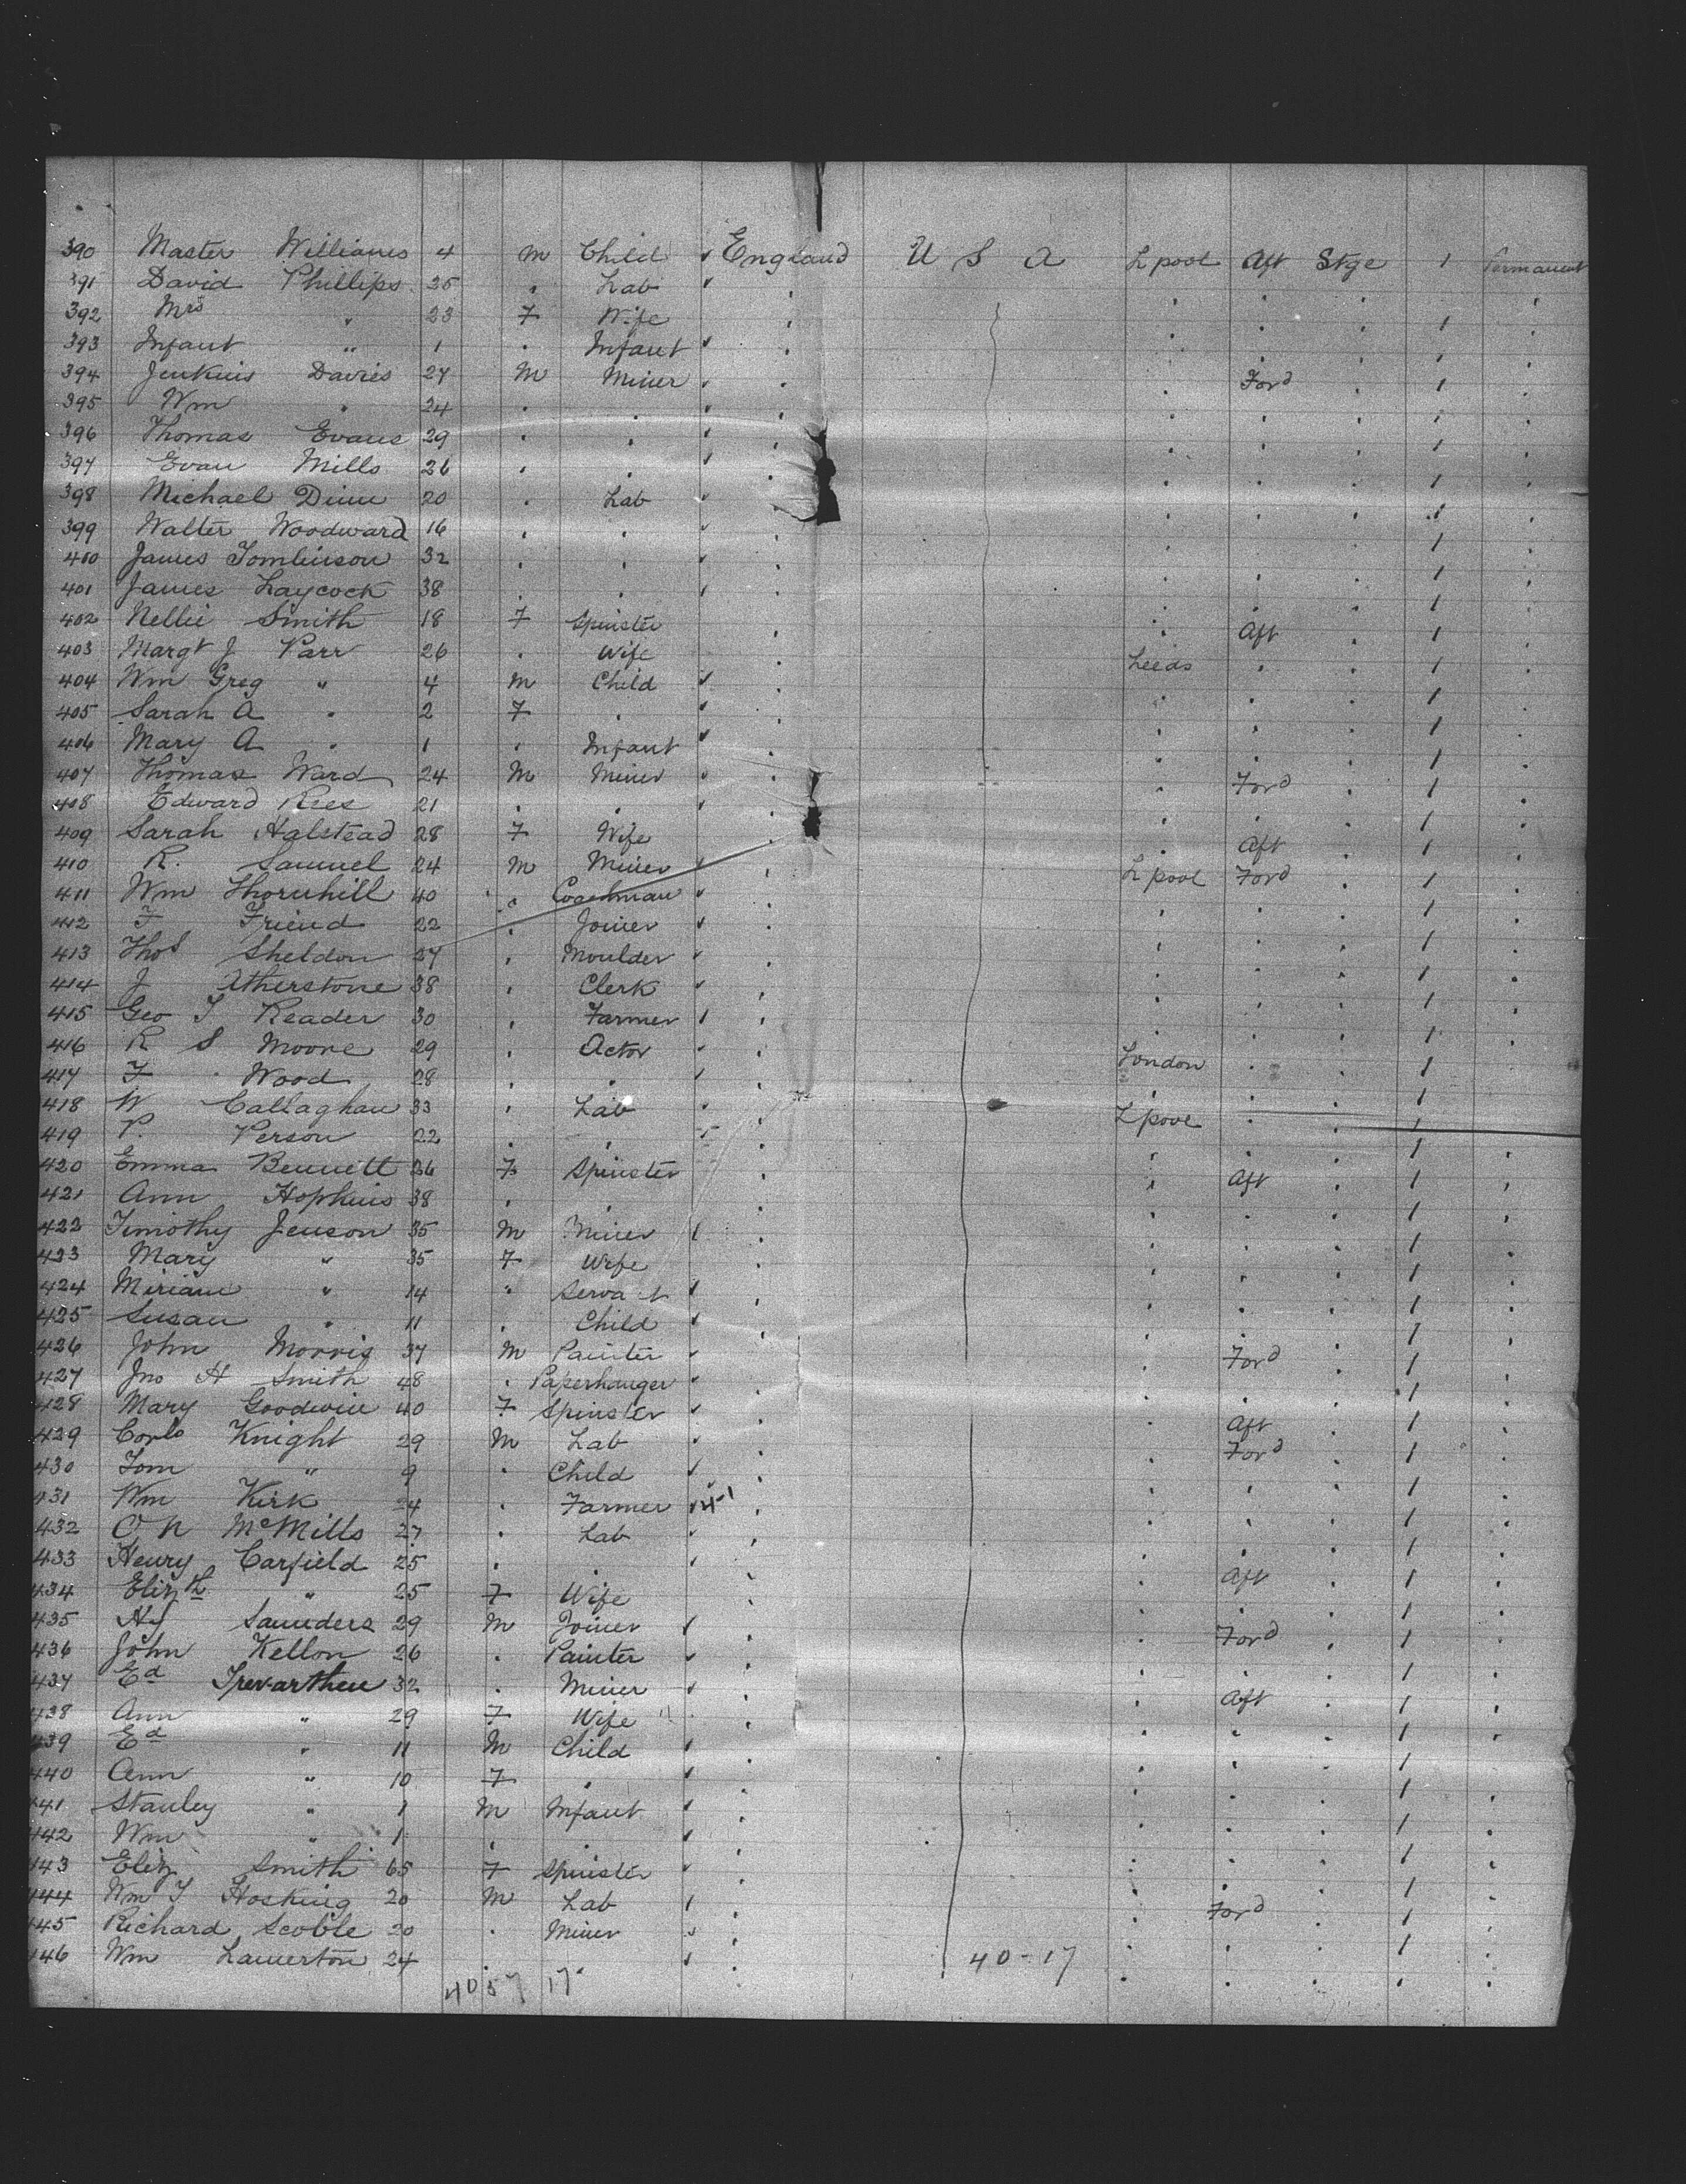 390 Master Williams 4 m Child England U S A Lpool Aft Stge 1 Permanent
391 David Phillips 25 " Lab " " " " "
392 Mrs " 23 F Wife " " " " 1 "
393 Infant " 1 " Infant " " " " 1 "
394 Jenkins Davies 27 M Miner " " Ford " 1 "
395 Wm " 24 " " " " " " "
396 Thomas Evans 29 " " " " " " 1 "
397 Evan Mills 26 " " " " " " 1 "
398 Michael 20 " Lab " " " " 1 "
399 Walter Woodward 16 " " " " " " 1 "
400 James Tomlinson 32 " " " " " " 1 "
401 James Laycock 38 " " " " " " 1 "
402 Nellie Smith 18 F Spinster " " Aft " 1 "
403 Margt J Parr 26 " Wife " Leeds " " 1 "
404 Wm Greg " 4 M Child " " " " 1 "
405 Sarah A " 2 F " " " " " 1 "
406 Mary A " 1 " Infant " " " " 1 "
407 Thomas Ward 24 M Miner " " Ford " 1 "
408 Edward Rees 21 " " " " " " 1 "
409 Sarah Halstead 28 F Wife " " Aft " 1 "
410 R. Samuel 24 M Miner " Lpool Ford " 1 "
411 Wm Thornhill 40 " Coachman " " " " 1 "
412 F Friend 22 " Joiner " " " " 1 "
413 Thos Sheldon 27 " Moulder " " " " 1 "
414 J Atherstone 38 " Clerk " " " " 1 "
415 Geo T Reader 30 " Farmer " " " " 1 "
416 R S Moore 29 " Actor " London " " 1 "
417 F Wood 28 " " " " " " 1 "
418 W Callaghan 33 " Lab " Lpool " " 1 "
419 P. Person 22 " " " " " " 1 "
420 Emma Bennett 26 F Spinster " " Aft " 1 "
421 Ann Hopkins 38 " " " " " " 1 "
422 Timothy Jenson 35 M Miner " " " " 1 "
423 Mary " 35 F Wife " " " " 1 "
424 Miriam " 14 " Serva t " " " " 1 "
425 Susan " 11 " Child " " " " 1 "
426 John Morris 37 M Painter " " Ford " 1 "
427 Jno H Smith 48 " Paperhanger " " " " 1 "
428 Mary Goodwin 40 F Spinster " " Aft " 1 "
429 Knight 29 M Lab " " Ford " 1 "
430 Tom " 9 " Child " " " " 1 "
431 Wm Kirk 24 " Farmer " " " " 1 "
432 O N McMills 27 " Lab " " " " 1 "
433 Henry Carfield 25 " " " " Aft " 1 "
434 Elizth " 25 F Wife " " " " 1 "
435 Hy Saunders 29 M Joiner " " Ford " 1 "
436 John Kellon 26 " Painter " " " " 1 "
437 Ed Trevarthen 32 " Miner " " Aft " 1 "
438 Ann " 29 F Wife " " " " 1 "
439 Ed " 11 M Child " " " " 1 "
440 Ann " 10 F " " " " " 1 "
441 Stanley " 1 M Infant " " " " 1 "
442 Wm " 1 " " " " " " 1 "
443 Eliz Smith 65 F Spinster " " " " 1 "
444 Wm T Hosking 20 M Lab " " Ford " 1 "
445 Richard Scoble 20 " Miner " " " " 1 "
446 Wm Lamerton 24 " " " " " " "
40 57 17 40-17